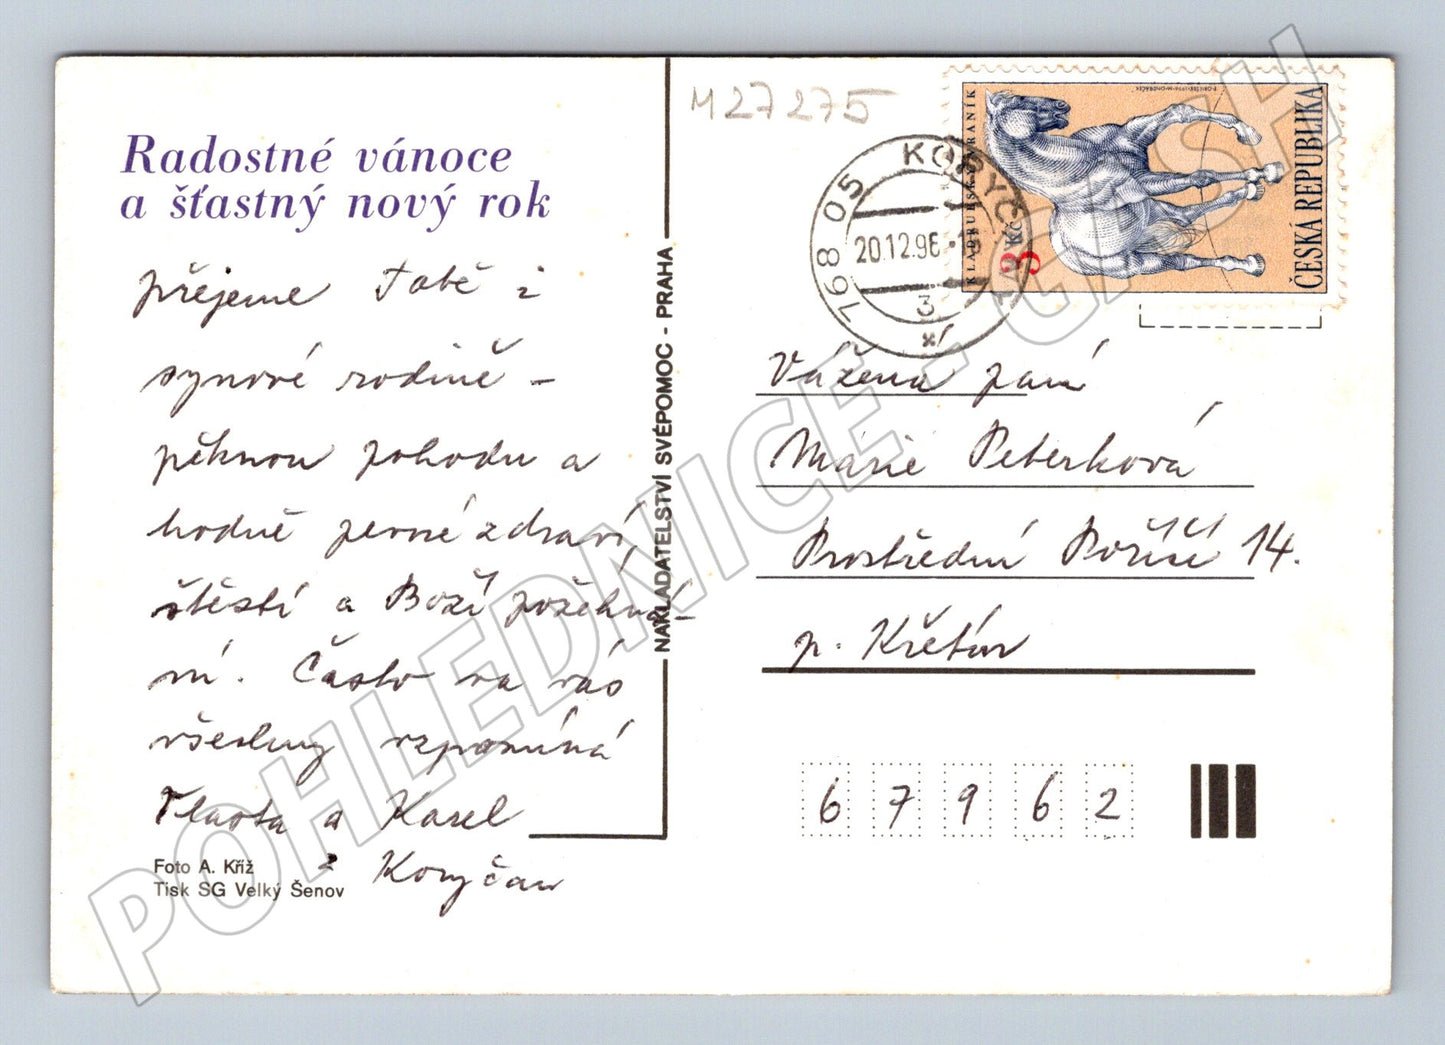 Radostné vánoce
a šťastný nový rok
přejeme Tobě i
synové rodině -
pěknou pohodu a
hodně pevné zdraví,
štěstí a Boží požehná-
ní. Často na vás
všechny vzpomíná
Vlasta a Karel
z Koryčan
Foto A. Kříž
Tisk SG Velký Šenov
NAKLADATELSTVÍ SVÉPOMOC - PRAHA
M27275
768 05 KORYČANY
20.12.96
3
KLADRUBSKÝ VRANÍK
3 Kč
ČESKÁ REPUBLIKA
Vážená paní
Marie Peterková
Prostřední Poříčí 14.
p. Křetín
67962
POHLEDNICE - CASH